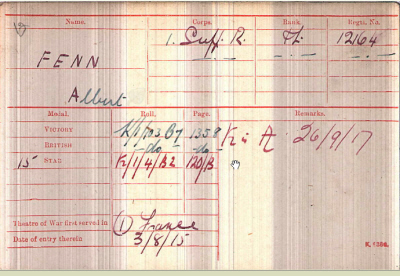 Name. Corps. Rank. Regtl. No.
FENN 1. Suff. R. Pte. 12164
Albert
Medal. Roll. Page. Remarks.
VICTORY K/1/103 B7 1358 K in A. 26/9/17
BRITISH -do- -do-
15 STAR K/1/4/B2 120/B
Theatre of War first served in (1) France
Date of entry therein 3/8/15
K. 1380.